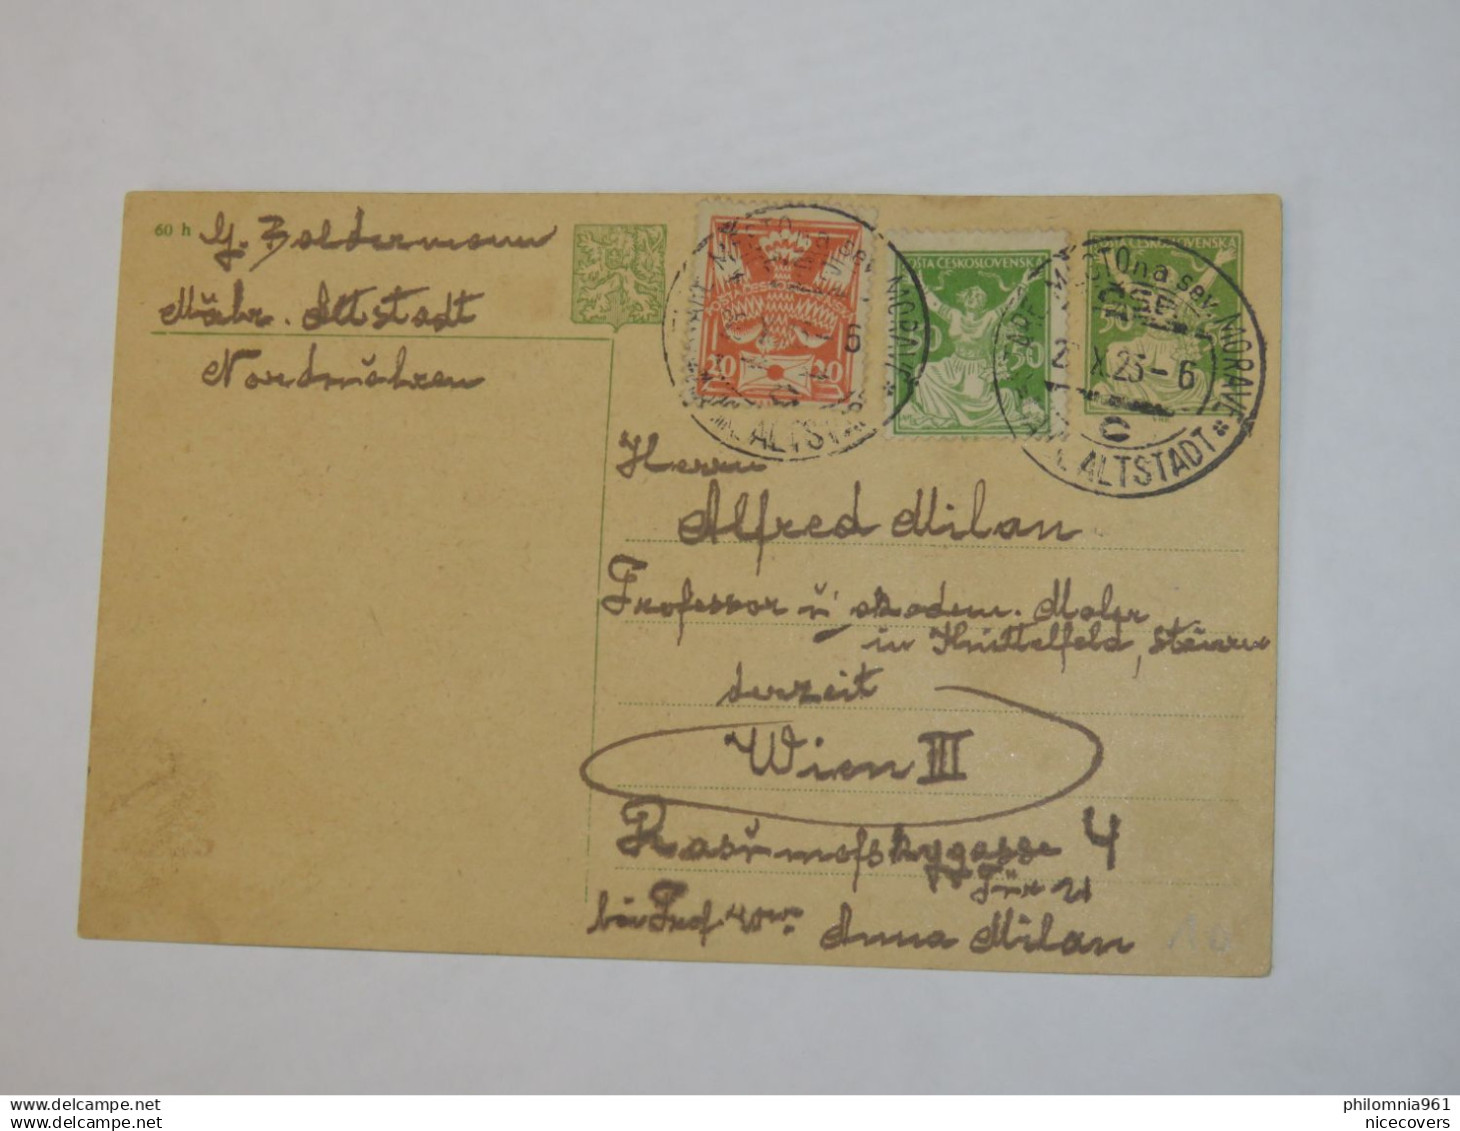 60 h
G. Boldermann
Mähr. Altstadt
Nordmähren
20 20
POŠTA ČESKOSLOVENSKÁ
50
POŠTA ČESKOSLOVENSKÁ
50
MĚSTO na sev. MORAVĚ *
X 6
ALTSTADT
MĚSTO na sev. MORAVĚ *
X. 25 - 6
C
ALTSTADT
Herrn
Alfred Milan
Professor u. akadem. Maler
in Knittelfeld, Steierm
derzeit
Wien III
Rasumofskygasse 4
Tür 21
bei Prof. Wwe Anna Milan
www.delcampe.net
philomnia961
nicecovers